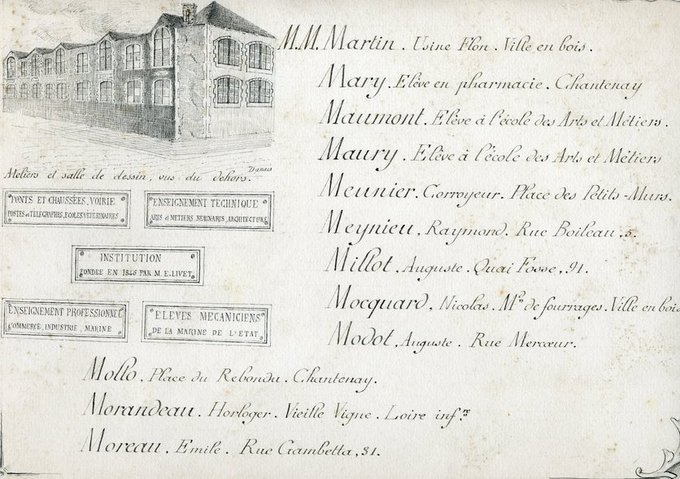 M.M. Martin. Usine Flon. Ville en bois.
Mary. Elève en pharmacie. Chantenay
Maumont. Elève à l'école des Arts et Métiers.
Maury. Elève à l'école des Arts et Métiers
Meunier. Corroyeur. Place des Petits-Murs.
Meynieu, Raymond. Rue Boileau, 5.
Millot, Auguste. Quai Fosse, 91.
Mocquard, Nicolas. Md de fourrages. Ville en bois
Modot, Auguste. Rue Mercœur.
Mollo. Place du Rebondu. Chantenay.
Morandeau. Horloger. Vieille Vigne. Loire infre
Moreau. Emile. Rue Gambetta, 31.
Ateliers et salle de dessin, vus du dehors.
PONTS ET CHAUSSÉES, VOIRIE
POSTES et TÉLÉGRAPHES, ECOLES VÉTÉRINAIRES
ENSEIGNEMENT TECHNIQUE
ARTS et METIERS, ARCHITECTURE
INSTITUTION
FONDÉE EN 1846 PAR M. E. LIVET
ENSEIGNEMENT PROFESSIONNEL
COMMERCE, INDUSTRIE, MARINE
ELEVES MECANICIENS
DE LA MARINE DE L'ETAT